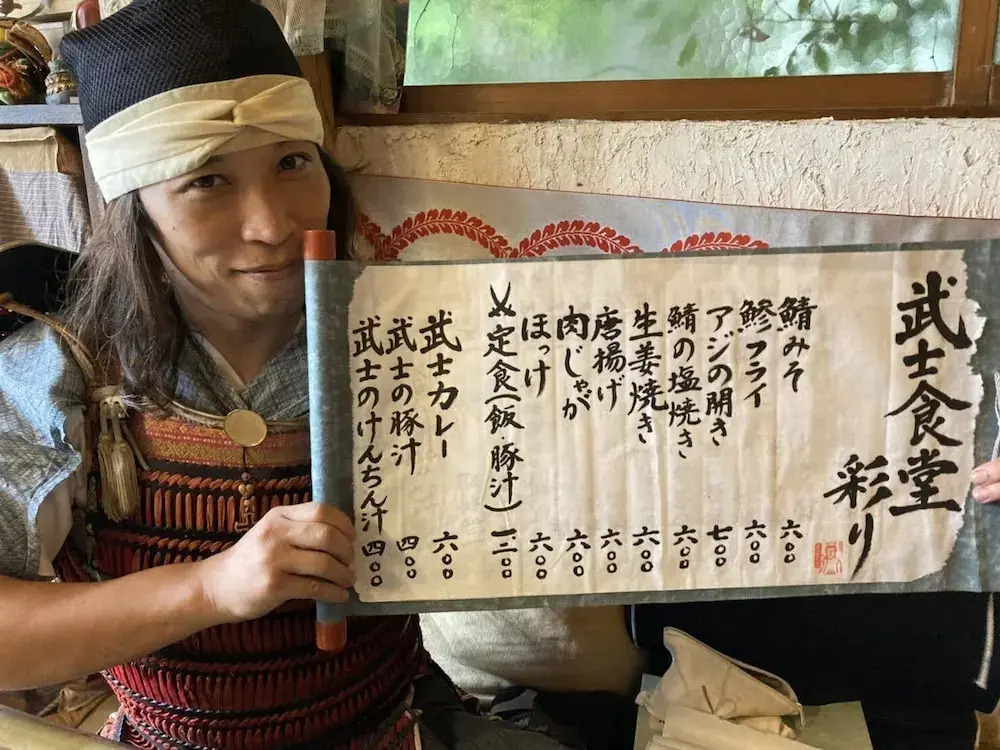 武士食堂
彩り
鯖みそ 六〇〇
鯵フライ 六〇〇
アジの開き 七〇〇
鯖の塩焼き 六〇〇
生姜焼き 六〇〇
唐揚げ 六〇〇
肉じゃが 六〇〇
ほっけ 六〇〇
定食(飯・豚汁) 一二〇〇
武士カレー 六〇〇
武士の豚汁 四〇〇
武士のけんちん汁 四〇〇